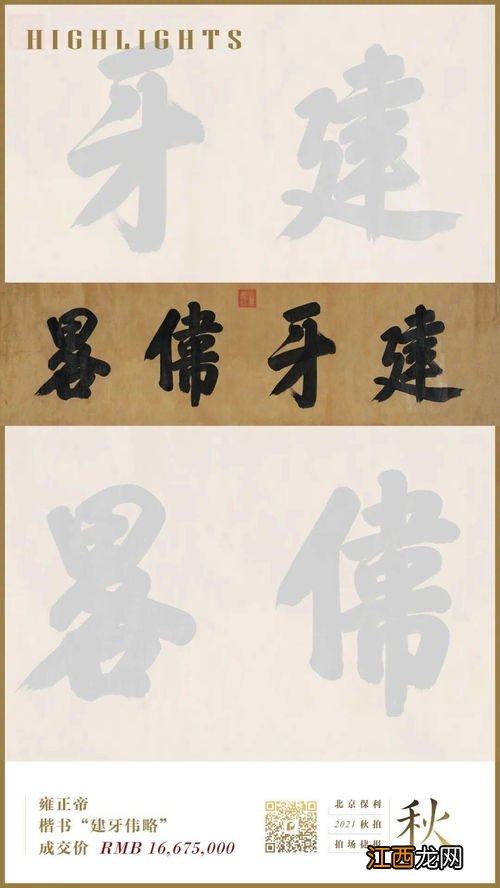 HIGHLIGHTS
建牙
建牙偉畧
偉畧
雍正帝
楷书“建牙伟略”
成交价 RMB 16,675,000
北京保利
2021 秋拍
拍场捷报
秋
江西龙网